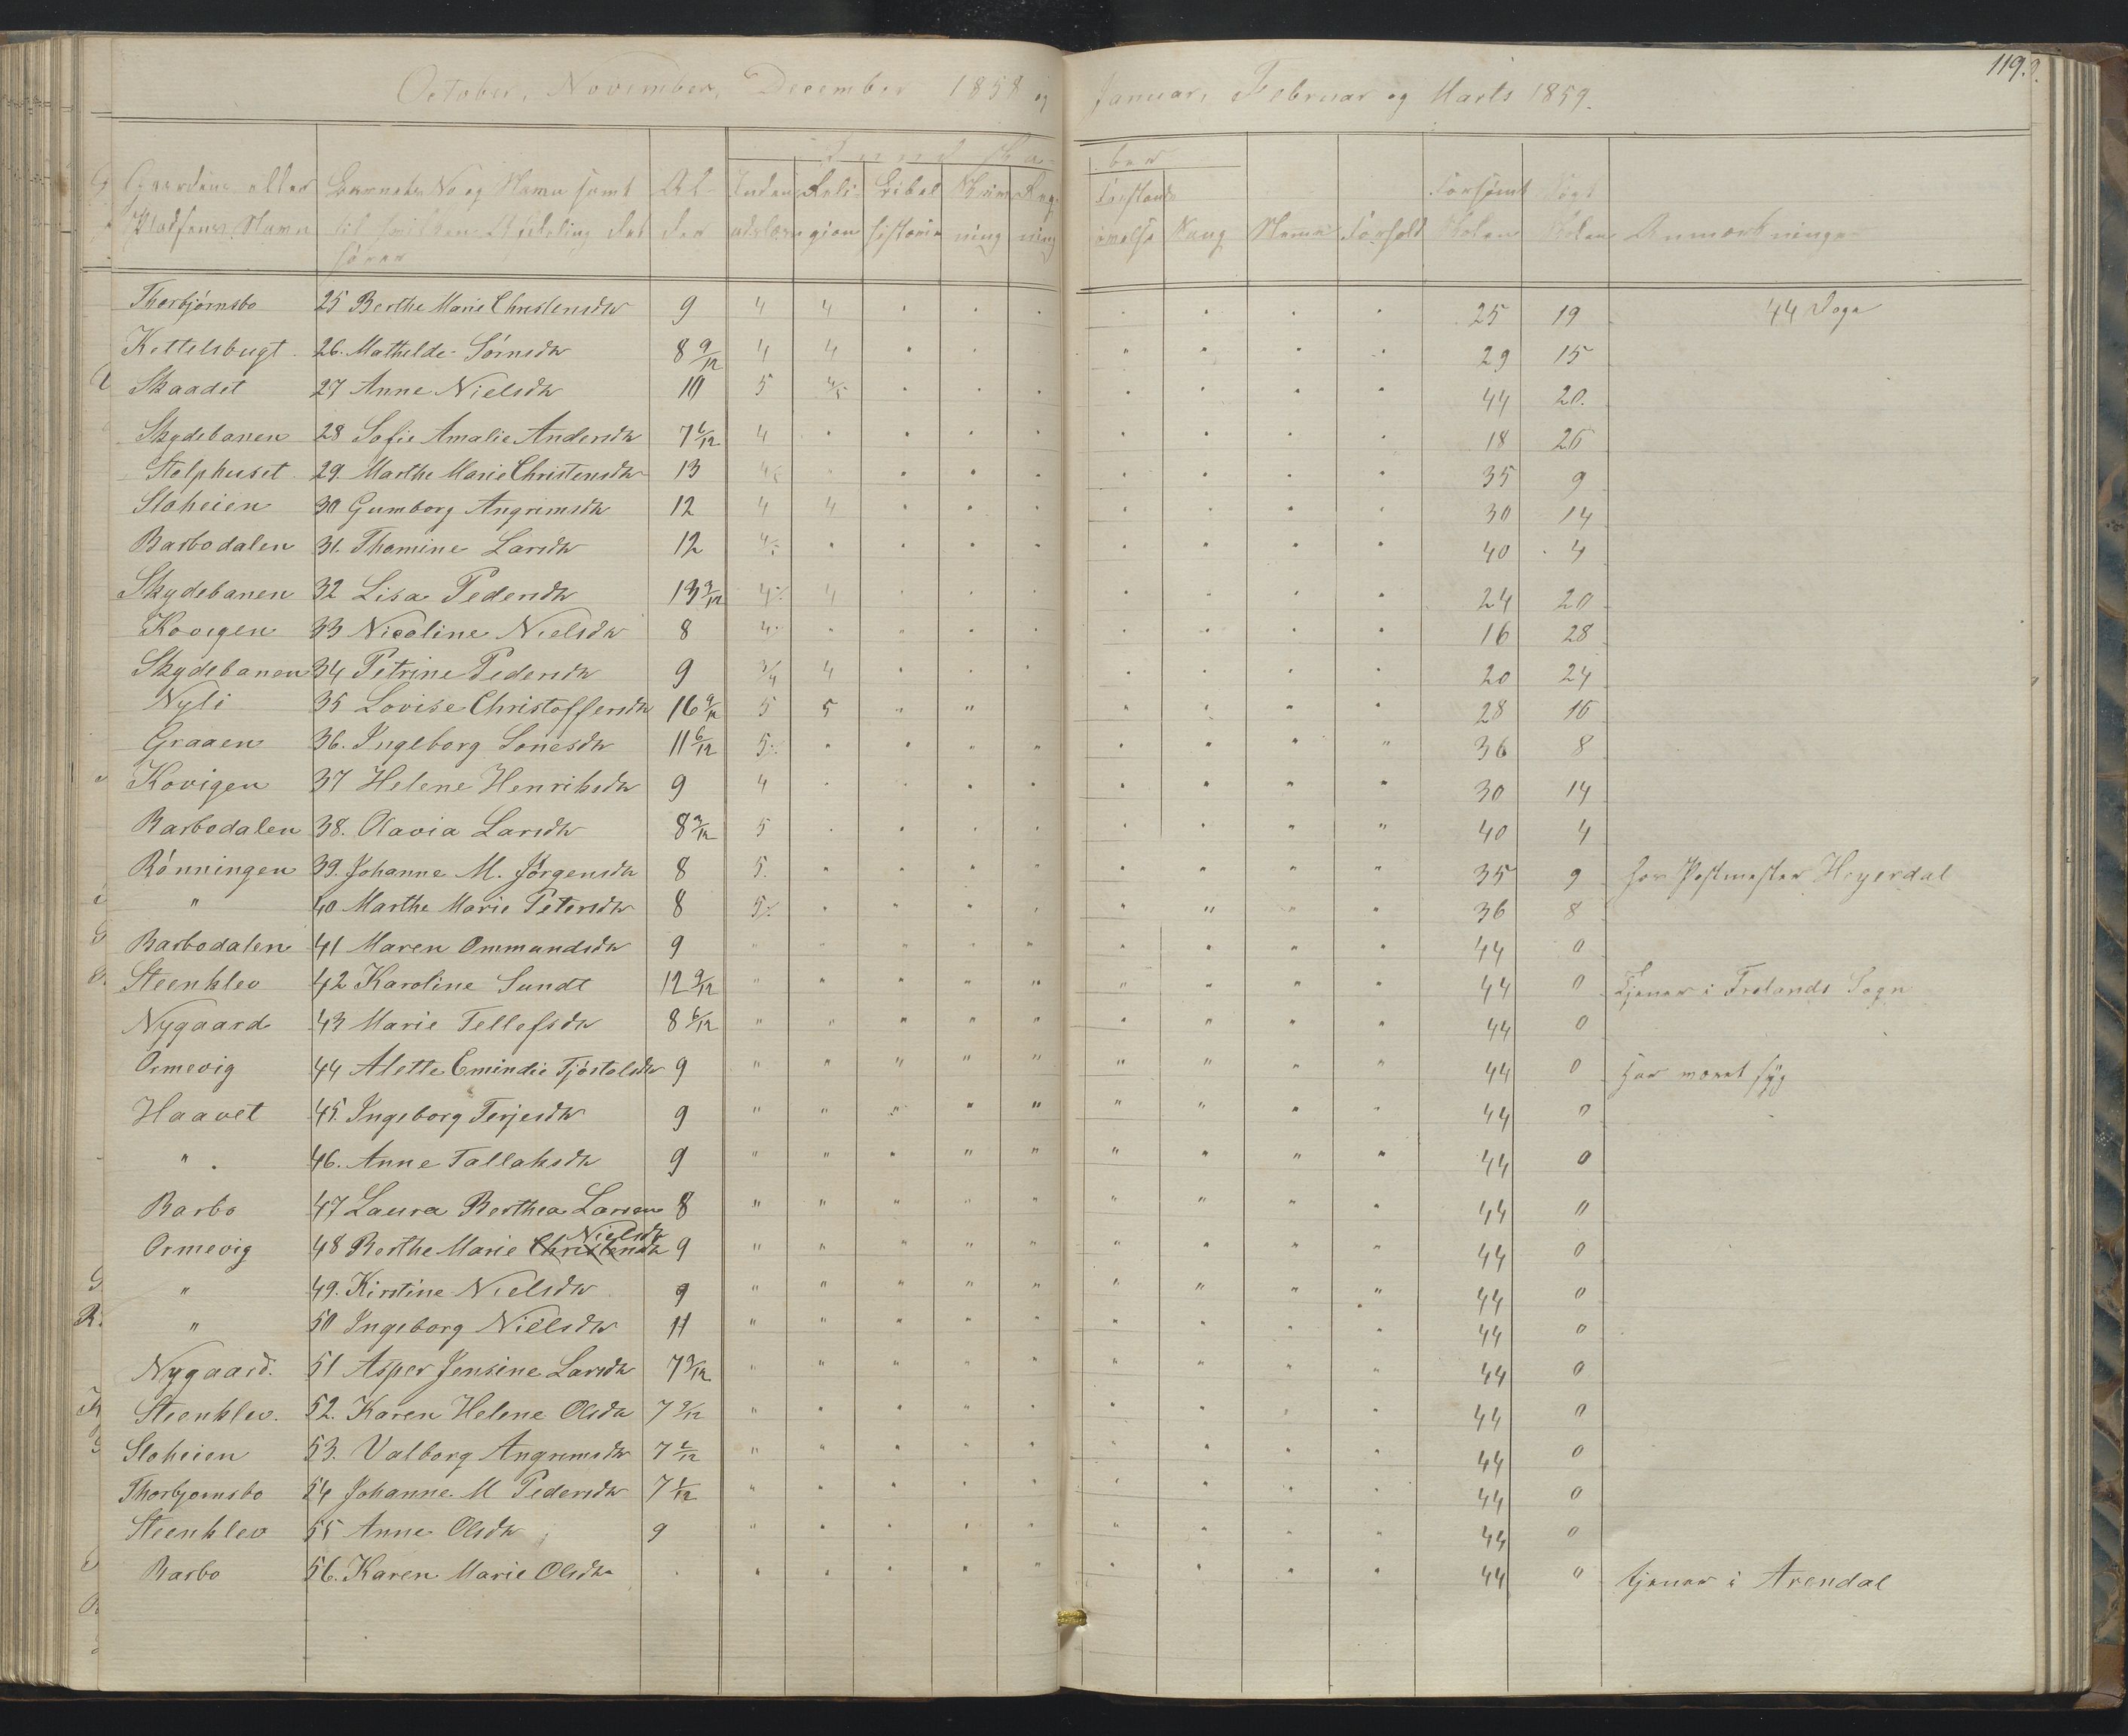 119.
October, November, December 1858 og Januar, Februar og Marts 1859.
Kundska- ber
Gaardens eller Pladsens Navn | Barnets No og Navn samt til hvilken Afdeling det hører | Al- der | Inden- adslæsn | Reli- gion | Bibel historie | Skriv- ning | Reg- ning | Forstands øvelse | Sang | Evne | Forhold | Forsømt Skolen | Søgt Skolen | Anmærkninger
Thorbjørnsbo 25 Berthe Marie Christensdtr 9 4 4 25 19 44 Dage
Kettelsbugt 26. Mathilde Sørnsdtr 8 9/12 4 4 29 15
Skaadet 27 Anne Nielsdtr 10 5 4/5 44 20.
Skydebanen 28 Sofie Amalie Andersdtr 7 6/12 4 18 26
Stolphuset 29. Marthe Marie Christensdtr 13 35 9
Sloheien 30 Gumborg Angrimsdtr 12 4 4 30 14
Barbodalen 31. Thomine Larsdtr 12 40 4
Skydebanen 32 Lisa Pedersdtr 13 9/12 4 24 20
Kovigen 33 Nicoline Nielsdtr 8 4 16 28
Skydebanen 34 Petrine Pedersdtr 9 3/4 4 20 24
Nyli 35 Lovise Christoffersdtr 16 9/12 5 5 " " 28 16
Graaen 36. Ingeborg Sonesdtr 11 6/12 5 36 8
Kovigen 37 Helene Henriksdtr 9 4 30 14
Barbodalen 38. Olavia Larsdtr 8 9/12 5 40 4
Rønningen 39. Johanne M. Jørgensdtr 8 5. 35 9 hos Postmester Heyerdal
" 40 Marthe Marie Petersdtr 8 5 36 8
Barbodalen 41 Maren Ommundsdtr 9 44 0
Steenklev 42 Karoline Sundt 12 9/12 44 0 Tjener i Frolands Sogn
Nygaard 43 Marie Tellefsdtr 8 6/12 44 0
Ormevig 44 Alette Emindie Tjøstolsdtr 9 44 0 Har været syg
Haavet 45. Ingeborg Terjesdtr 9 44 0
" 46. Anne Tallaksdtr 9 44 0
Barbo 47 Laura Berthea Larsen 8 44 0
Ormevig 48 Berthe Marie Christensdtr Nielsdtr 9 44 0
" 49. Kirstine Nielsdtr 9 44 0
" 50 Ingeborg Nielsdtr 11 44 0
Nygaard. 51 Asper Jensine Larsdtr 7 9/12 44 0
Steenklev. 52. Karen Helene Olsdtr 7 9/12 44 0
Sloheien 53. Valborg Angrimsdtr 7 44 0
Thorbjornsbo 54 Johanne M Pedersdtr 7 44 0
Steenklev 55 Anne Olsdtr 9 44 0
Barbo 56. Karen Marie Olsdtr 44 0 tjener i Arendal